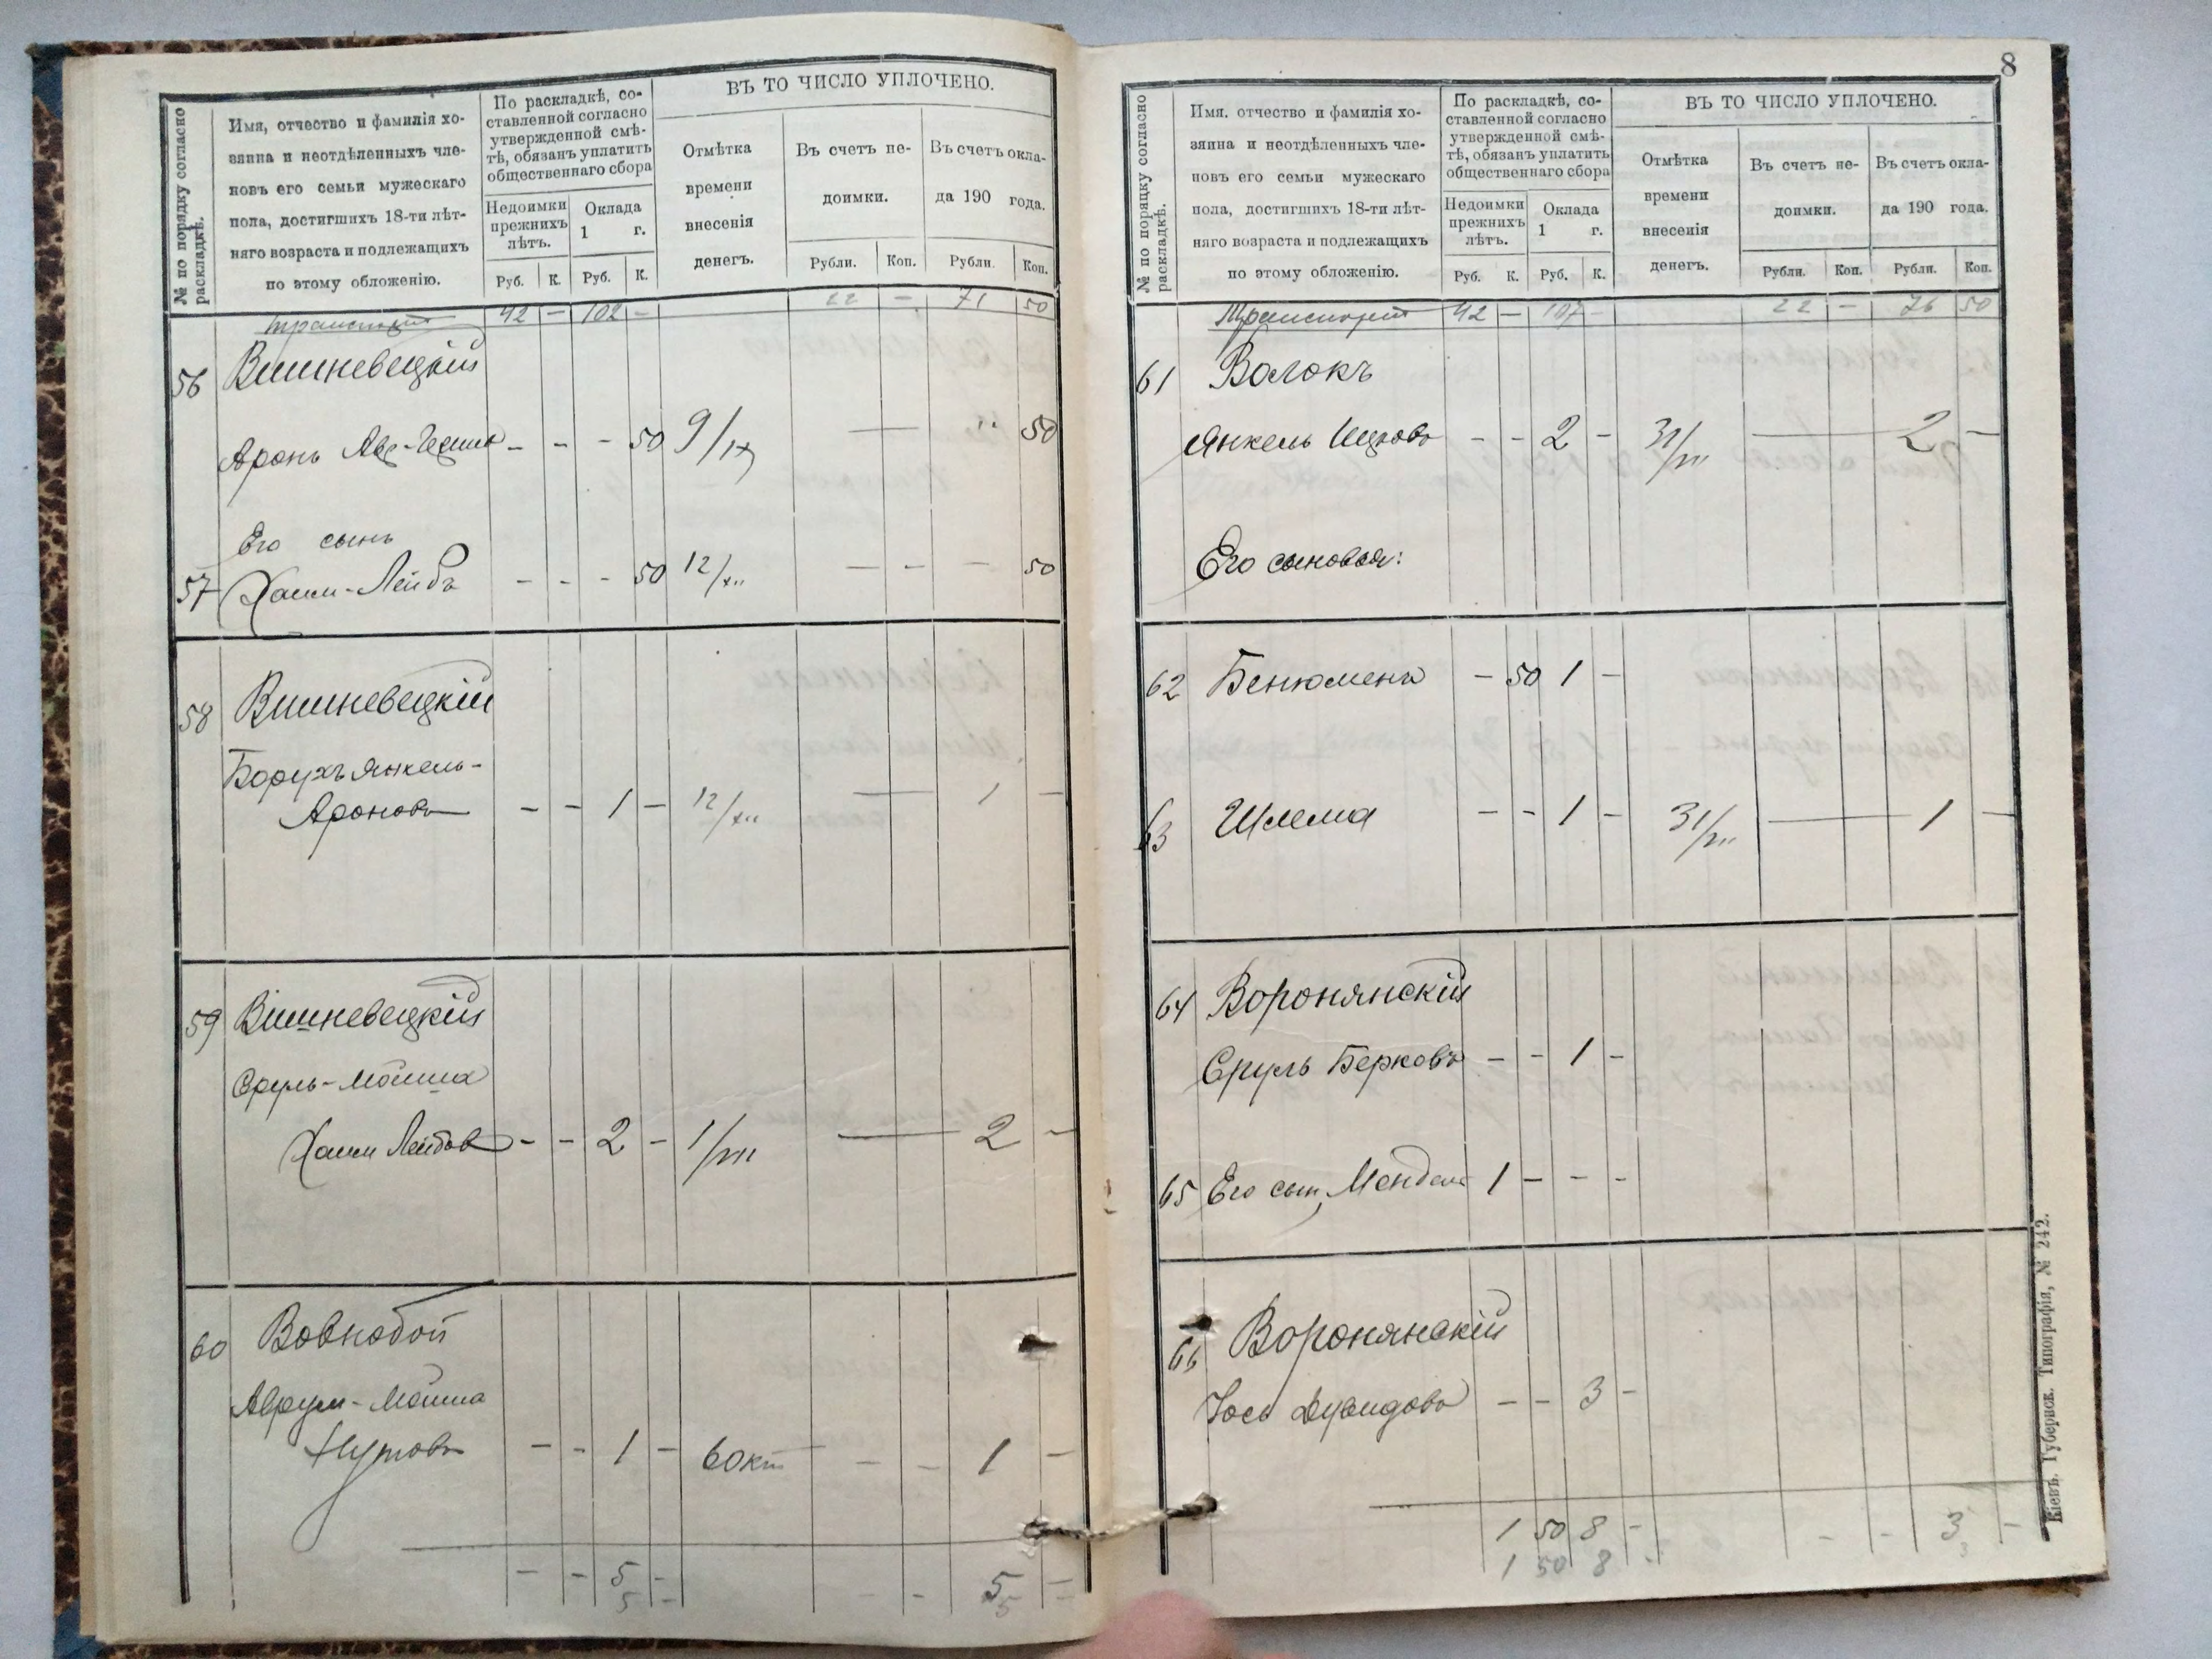 № по порядку согласно раскладкѣ.
Имя, отчество и фамилія хо-
зяина и неотдѣленныхъ чле-
новъ его семьи мужескаго
пола, достигшихъ 18-ти лѣт-
няго возраста и подлежащихъ
по этому обложенію.
По раскладкѣ, со-
ставленной согласно
утвержденной смѣ-
тѣ, обязанъ уплатить
общественнаго сбора
Недоимки
прежнихъ
лѣтъ.
Оклада
1 г.
Руб. К. Руб. К.
ВЪ ТО ЧИСЛО УПЛОЧЕНО.
Отмѣтка
времени
внесенія
денегъ.
Въ счетъ не-
доимки.
Въ счетъ окла-
да 190 года.
Рубли. Коп. Рубли. Коп.
транспортъ 42 — 102 — 22 — 71 50
56 Вишневецкій
Аронъ - - - 50 9/IX — 50
Его сынъ
57 Хаим-Лейбъ - - - 50 12/XII — — — 50
58 Вишневецкій
Борухъ Янкель-
Ароновъ - - 1 - 12/XII — 1 —
59 Вишневецкій
Сруль-Мойша
Хаим Лейбов - - 2 - 1/VIII — 2 —
60 Вовнобой
Аврум-Мойша
Нутовъ - - 1 - 6 окт - - 1 -
- - 5 - - - 5 -
5 - 5 -
8
№ по порядку согласно раскладкѣ.
Имя. отчество и фамилія хо-
зяина и неотдѣленныхъ чле-
новъ его семьи мужескаго
пола, достигшихъ 18-ти лѣт-
няго возраста и подлежащихъ
по этому обложенію.
По раскладкѣ, со-
ставленной согласно
утвержденной смѣ-
тѣ, обязанъ уплатить
общественнаго сбора
Недоимки
прежнихъ
лѣтъ.
Оклада
1 г.
Руб. К. Руб. К.
ВЪ ТО ЧИСЛО УПЛОЧЕНО.
Отмѣтка
времени
внесенія
денегъ.
Въ счетъ не-
доимки.
Въ счетъ окла-
да 190 года.
Рубли. Коп. Рубли. Коп.
Транспортъ 42 — 107 - 22 — 76 50
61 Волокъ
Янкель Ицковъ - - 2 - — 2 —
Его сыновья:
62 Бенюменъ - 50 1 -
63 Шлема - - 1 - — 1 —
64 Воронянскій
Сруль Берковъ - - 1 -
65 Его сын, Мендель 1 - - -
66 Воронянскій
Іось Дувидовъ - - 3 -
1 50 8 - - - 3 -
1 50 8 - 3
Кіевъ. Губернск. Типографія, № 242.